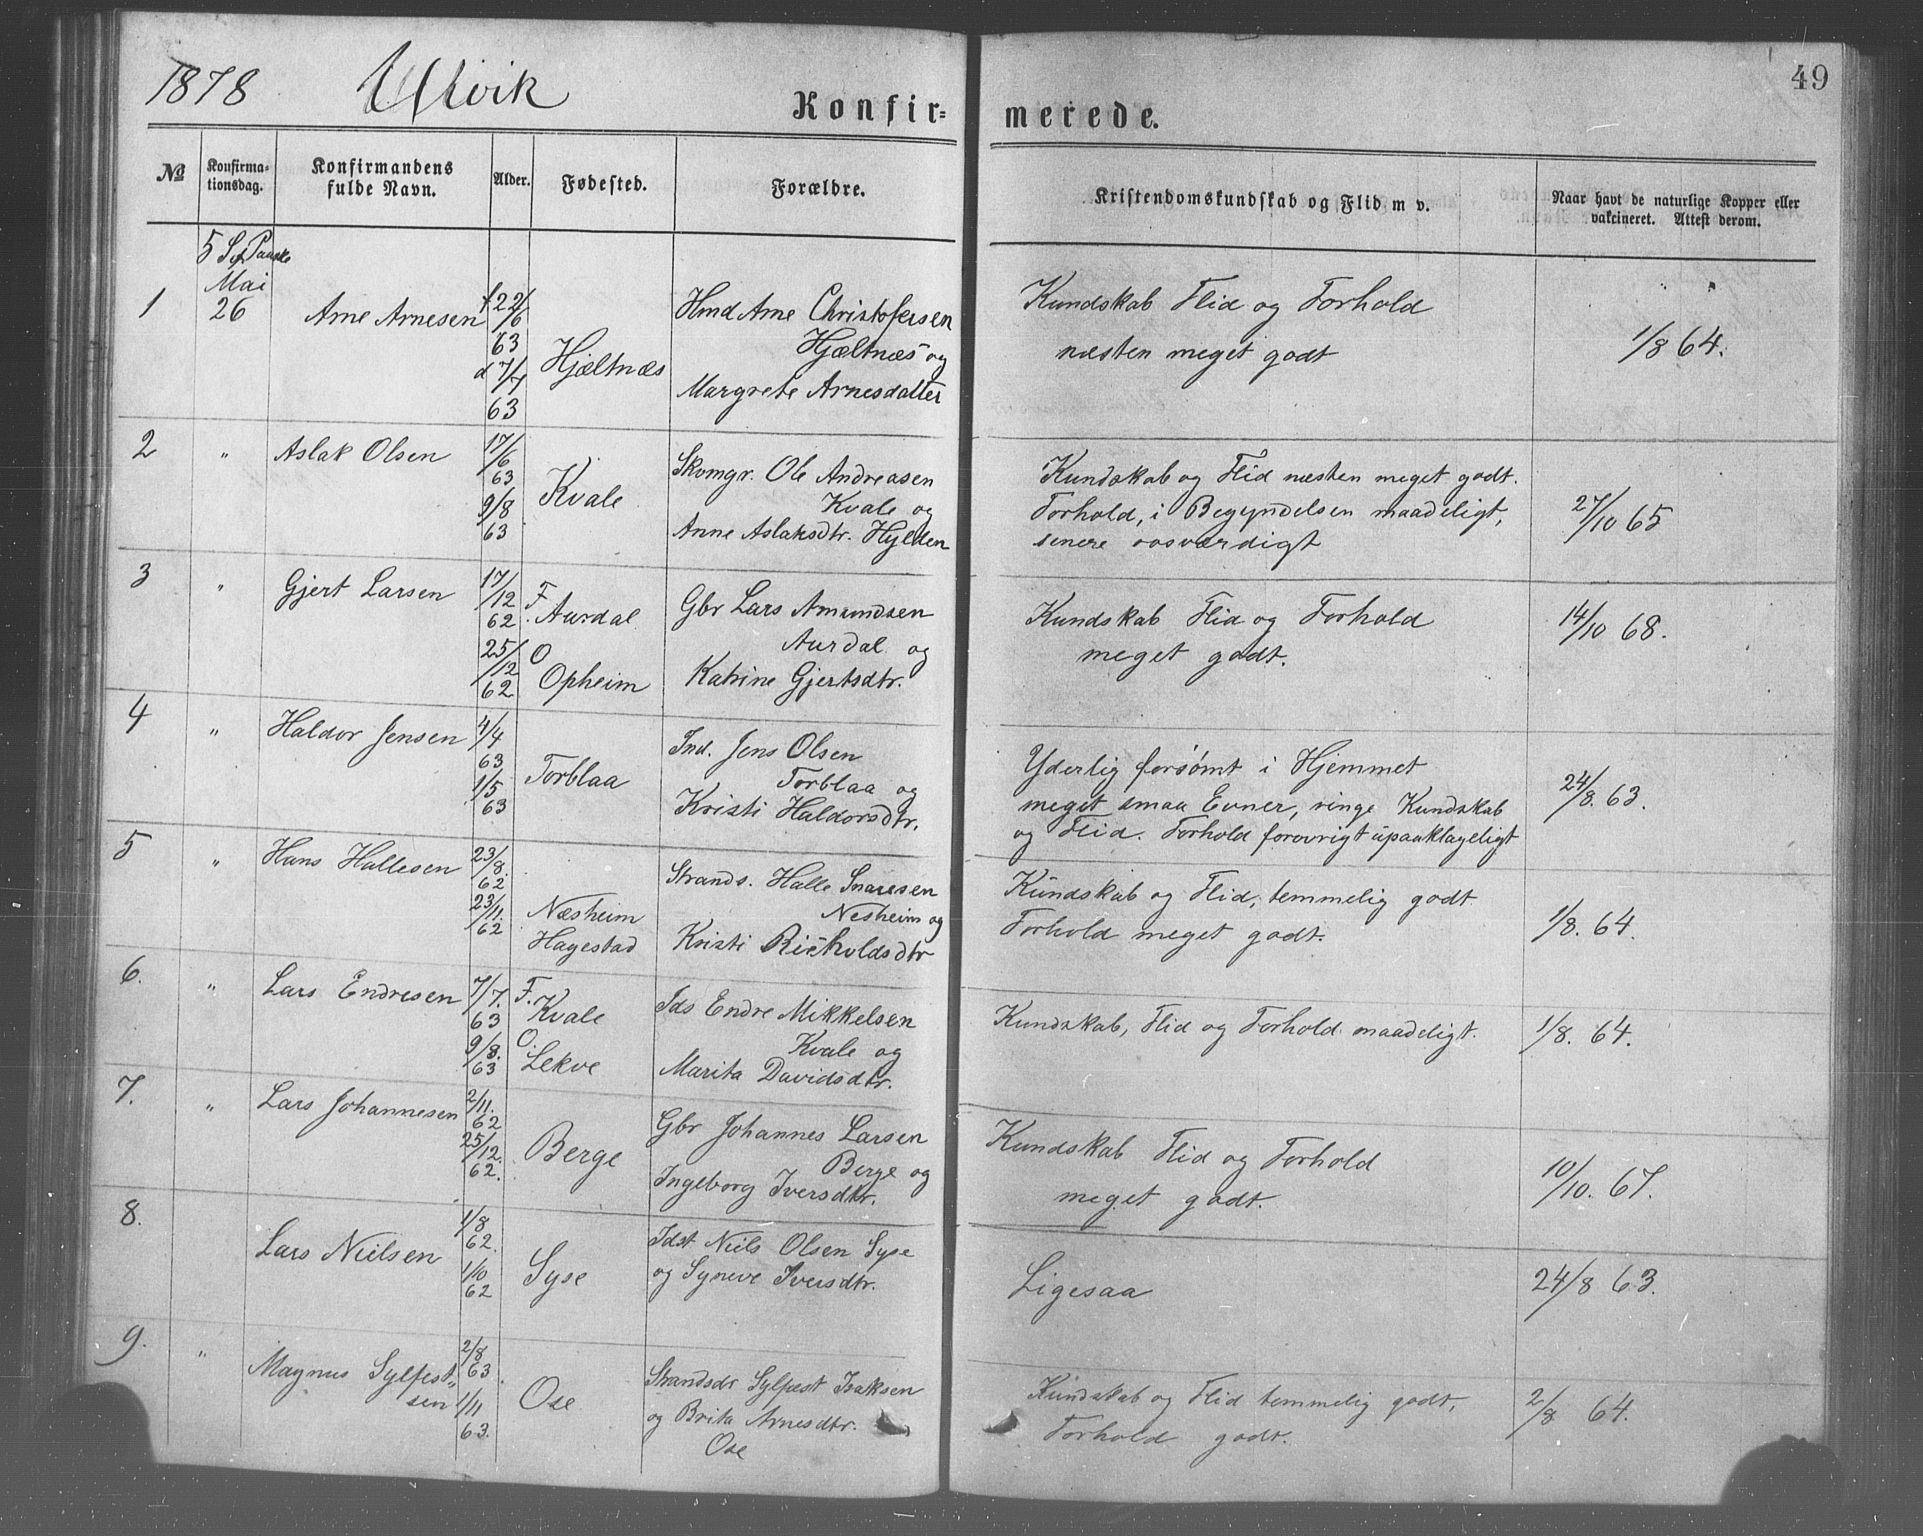 1878 Ulvik
Konfir=
merede.
49
№
Konfirma-
tionsdag.
Konfirmandens
fulde Navn.
Alder.
Fødested.
Forældre.
Kristendomskundskab og Flid m v.
Naar havt de naturlige Kopper eller
vakcineret. Attest derom.
5 S. e. Paaske
Mai
1 26 Arne Arnesen
f 22/6
63
d 7/7
63
Hjæltnæs
Hmd Arne Christofersen
Hjæltnæs og
Margrete Arnesdatter
Kundskab Flid og Forhold
næsten meget godt
1/8 64.
2 " Aslak Olsen
17/6
63
9/8
63
Kvale
Skomgr. Ole Andreasen
Kvale og
Anne Aslaksdtr. Hylden
Kundskab og Flid næsten meget godt.
Forhold, i Begyndelsen maadeligt,
senere rosværdigt
27/10 65
3 " Gjert Larsen
17/12
62
25/12
62
F.
Aurdal
O
Opheim
Gbr Lars Amundsen
Aurdal og
Katrine Gjertsdtr.
Kundskab Flid og Forhold
meget godt.
14/10 68.
4 " Haldor Jensen
4/4
63
1/5
63
Torblaa
Ind. Jens Olsen
Torblaa og
Kristi Haldorsdtr.
Yderlig forsømt i Hjemmet
meget smaa Evner, ringe Kundskab
og Flid. Forhold forøvrigt upaaklageligt
24/8. 63.
5 " Hans Hallesen
23/8.
62
23/11.
62
Næsheim
Hagestad
Strands. Halle Snaresen
Nesheim og
Kristi Richoldsdtr
Kundskab og Flid, temmelig godt
Forhold meget godt.
1/8. 64.
6. " Lars Endresen
7/7.
63
9/8.
63
F.
Kvale
O.
Lekve
Ids Endre Mikkelsen
Kvale og
Marita Davidsdtr.
Kundskab, Flid og Forhold maadeligt.
1/8. 64.
7. " Lars Johannesen
2/11.
62
25/12.
62.
Berge
Gbr Johannes Larsen
Berge og
Ingeborg Iversdtr.
Kundskab Flid og Forhold
meget godt.
10/10. 67.
8. Lars Nielsen
1/8
62.
1/10
62
Syse
Idst Niels Olsen Syse
og Syneve Iversdtr.
Ligesaa
24/8 63.
9. " Magnus Sylfest-
sen
2/8
63
1/11
63.
Ose
Strandsdr Sylfæst Isaksen
og Brita Arnesdtr.
Ose
Kundskab og Flid temmelig godt,
Forhold godt.
2/8 64.